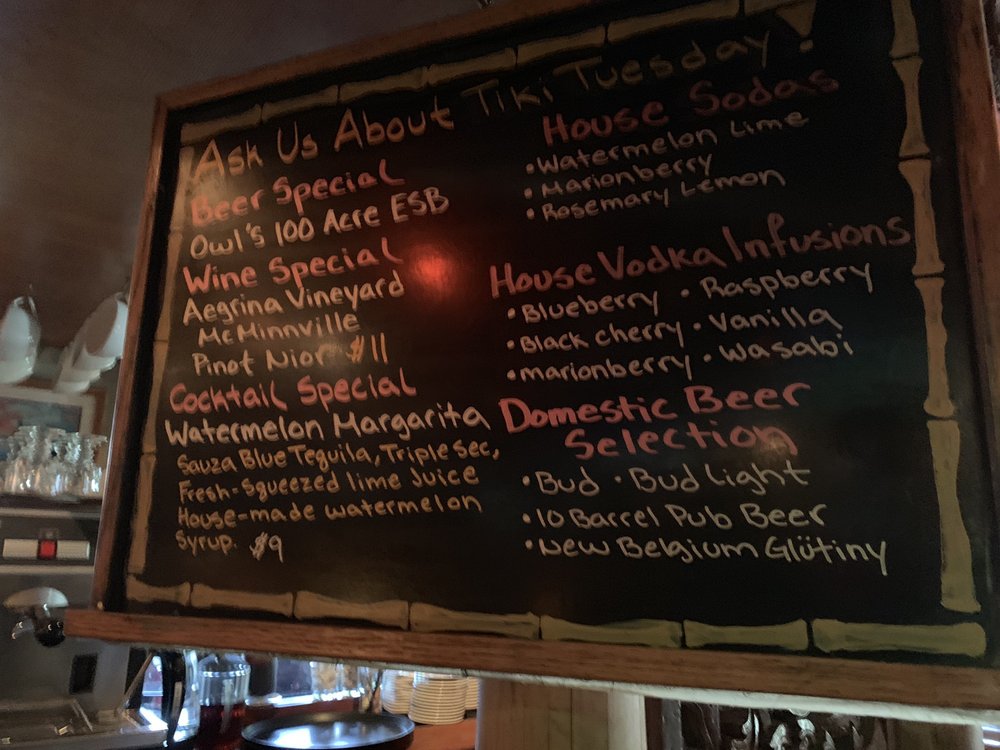 Ask Us About Tiki Tuesday!
Beer Special
Owl's 100 Acre ESB
Wine Special
Aegrina Vineyard
McMinnville
Pinot Nior $11
Cocktail Special
Watermelon Margarita
Sauza Blue Teguila, Triple Sec,
Fresh-Sgueezed lime Juice
House-made watermelon
Syrup. $9
House Sodas
• Watermelon Lime
• Marionberry
• Rosemary Lemon
House Vodka Infusions
• Blueberry • Raspberry
• Black cherry • Vanilla
• marionberry • Wasabi
Domestic Beer
Selection
• Bud • Bud Light
• 10 Barrel Pub Beer
• New Belgium Glütiny